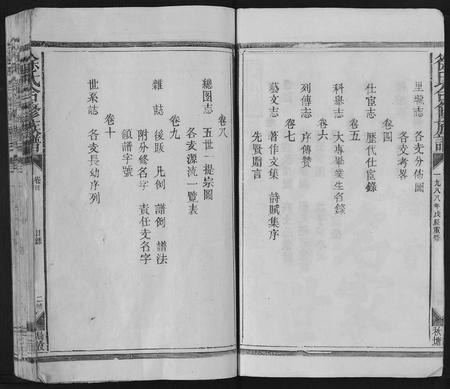 徐氏合修族譜
一九八八年戊辰重修
里號志　各支分佈圖
各支考畧
卷四
仕宦志　歷代仕宦錄
卷五
科舉志　大專畢業生名錄
卷六
列傳志　序傳贊
卷七
藝文志　著作文集　詩賦集序
先賢嘉言
卷八
總圖志　五世一提宗圖
各支源流一覽表
卷九
雜誌　後跋　凡例　譜例　譜法
附分修名字　責任支名字
領譜字號
卷十
世系志　各支長幼序列
徐氏合修族譜
卷首
目錄
二